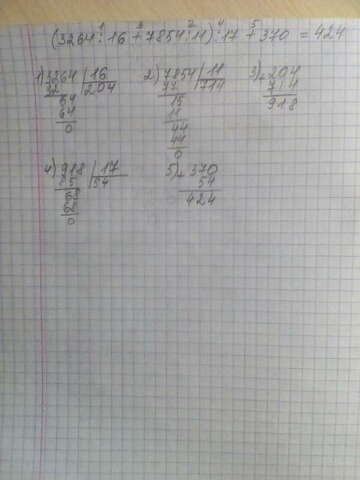 (3264:16+7854:11):17+370=424
1) 3264 | 16 2) 7854 | 11 3) +204
32 | 204 77 | 714 714
64 15 918
64 11
0 44
44
0
4) 918 | 17 5) +370
85 | 54 54
68 424
68
0